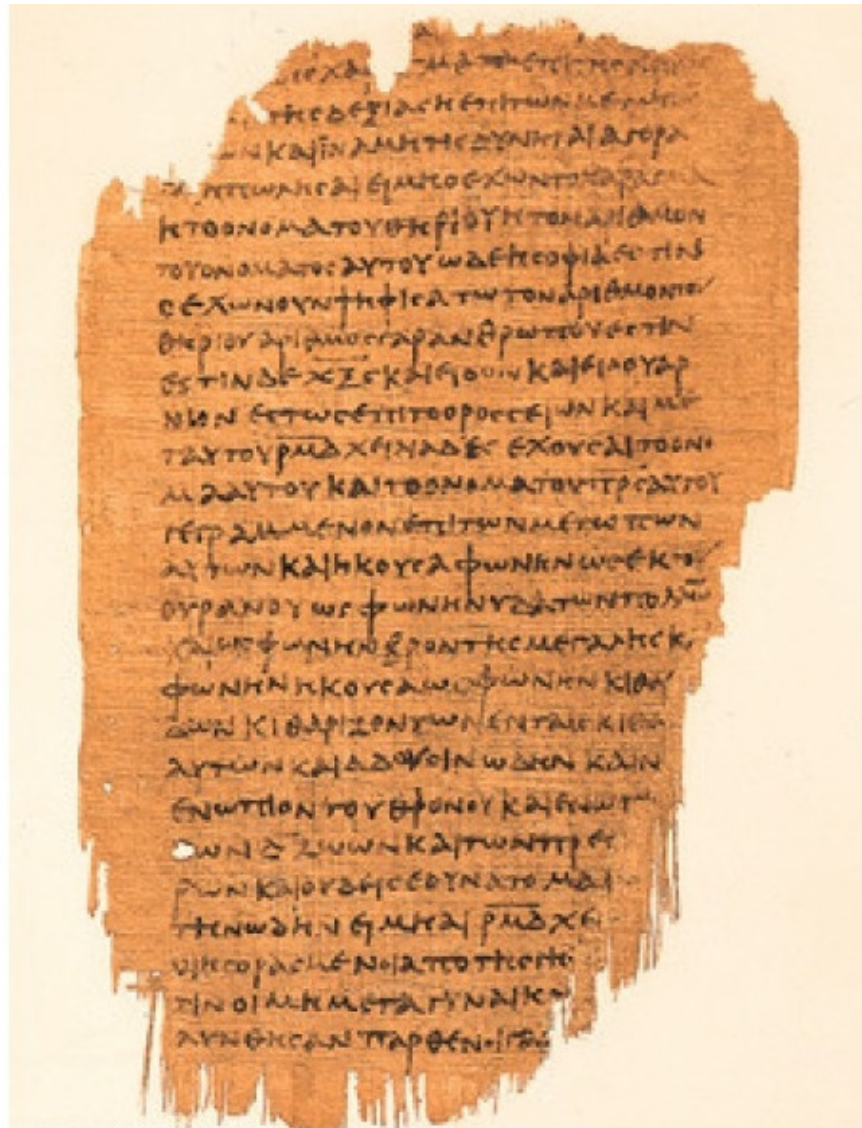 ΤΗCΔΕΞΙΑCΗΕΠΙΤΩΝΜΕΤΩΠ
ΩΝΚΑΙΙΝΑΜΗΤΙCΔΥΝΗΤΑΙΑΓΟΡΑ
ΗΠΩΛΗCΑΙΕΙΜΗΟΕΧΩΝΤΟΧΑΡΑΓΜΑ
ΗΤΟΟΝΟΜΑΤΟΥΘΗΡΙΟΥΗΤΟΝΑΡΙΘΜΟΝ
ΤΟΥΟΝΟΜΑΤΟCΑΥΤΟΥΩΔΕΗCΟΦΙΑΕCΤΙΝ
ΟΕΧΩΝΟΥΝΨΗΦΙCΑΤΩΤΟΝΑΡΙΘΜΟΝΤΟΥ
ΘΗΡΙΟΥΑΡΙΘΜΟCΓΑΡΑΝΘΡΩΠΟΥΕCΤΙΝ
ΕCΤΙΝΔΕΧ̅Ξ̅Ϛ̅ΚΑΙΕΙΔΟΝΚΑΙΕΙΔΟΥΑΡ
ΝΙΟΝΕCΤΩCΕΠΙΤΟΟΡΟCCΕΙΩΝΚΑΙΜΕ
ΤΑΥΤΟΥΡ̅Μ̅Δ̅ΧΕΙΛΙΑΔΕCΕΧΟΥCΑΙΤΟΟΝΟ
ΜΑΑΥΤΟΥΚΑΙΤΟΟΝΟΜΑΤΟΥΠ̅Ρ̅C̅ΑΥΤΟΥ
ΓΕΓΡΑΜΜΕΝΟΝΕΠΙΤΩΝΜΕΤΩΠΩΝ
ΑΥΤΩΝΚΑΙΗΚΟΥCΑΦΩΝΗΝΩCΕΚΤΟΥ
ΟΥΡΑΝΟΥΩCΦΩΝΗΝΥΔΑΤΩΝΠΟΛΛΩ
ΚΑΙΩCΦΩΝΗΝΒΡΟΝΤΗCΜΕΓΑΛΗCΚ
ΦΩΝΗΝΗΚΟΥCΑΩCΦΩΝΗΝΚΙΘΑ
ΔΩΝΚΙΘΑΡΙΖΟΝΤΩΝΕΝΤΑΙCΚΙΘΑ
ΑΥΤΩΝΚΑΙΑΔΟΥCΙΝΩΔΗΝΚΑΙΝ
ΕΝΩΠΙΟΝΤΟΥΘΡΟΝΟΥΚΑΙΕΝΩΠ
ΤΩΝΔ̅ΖΩΩΝΚΑΙΤΩΝΠΡΕC
ΡΩΝΚΑΙΟΥΔΕΙCΕΔΥΝΑΤΟΜΑ
ΤΗΝΩΔΗΝΕΙΜΗΑΙΡ̅Μ̅Δ̅ΧΕΙ
ΟΙΗΓΟΡΑCΜΕΝΟΙΑΠΟΤΗCΓΗ
ΤΙΝΟΙΜΗΜΕΤΑΓΥΝΑΙΚΩ
ΛΥΝΘΗCΑΝΠΑΡΘΕΝΟΙΓΑΡ